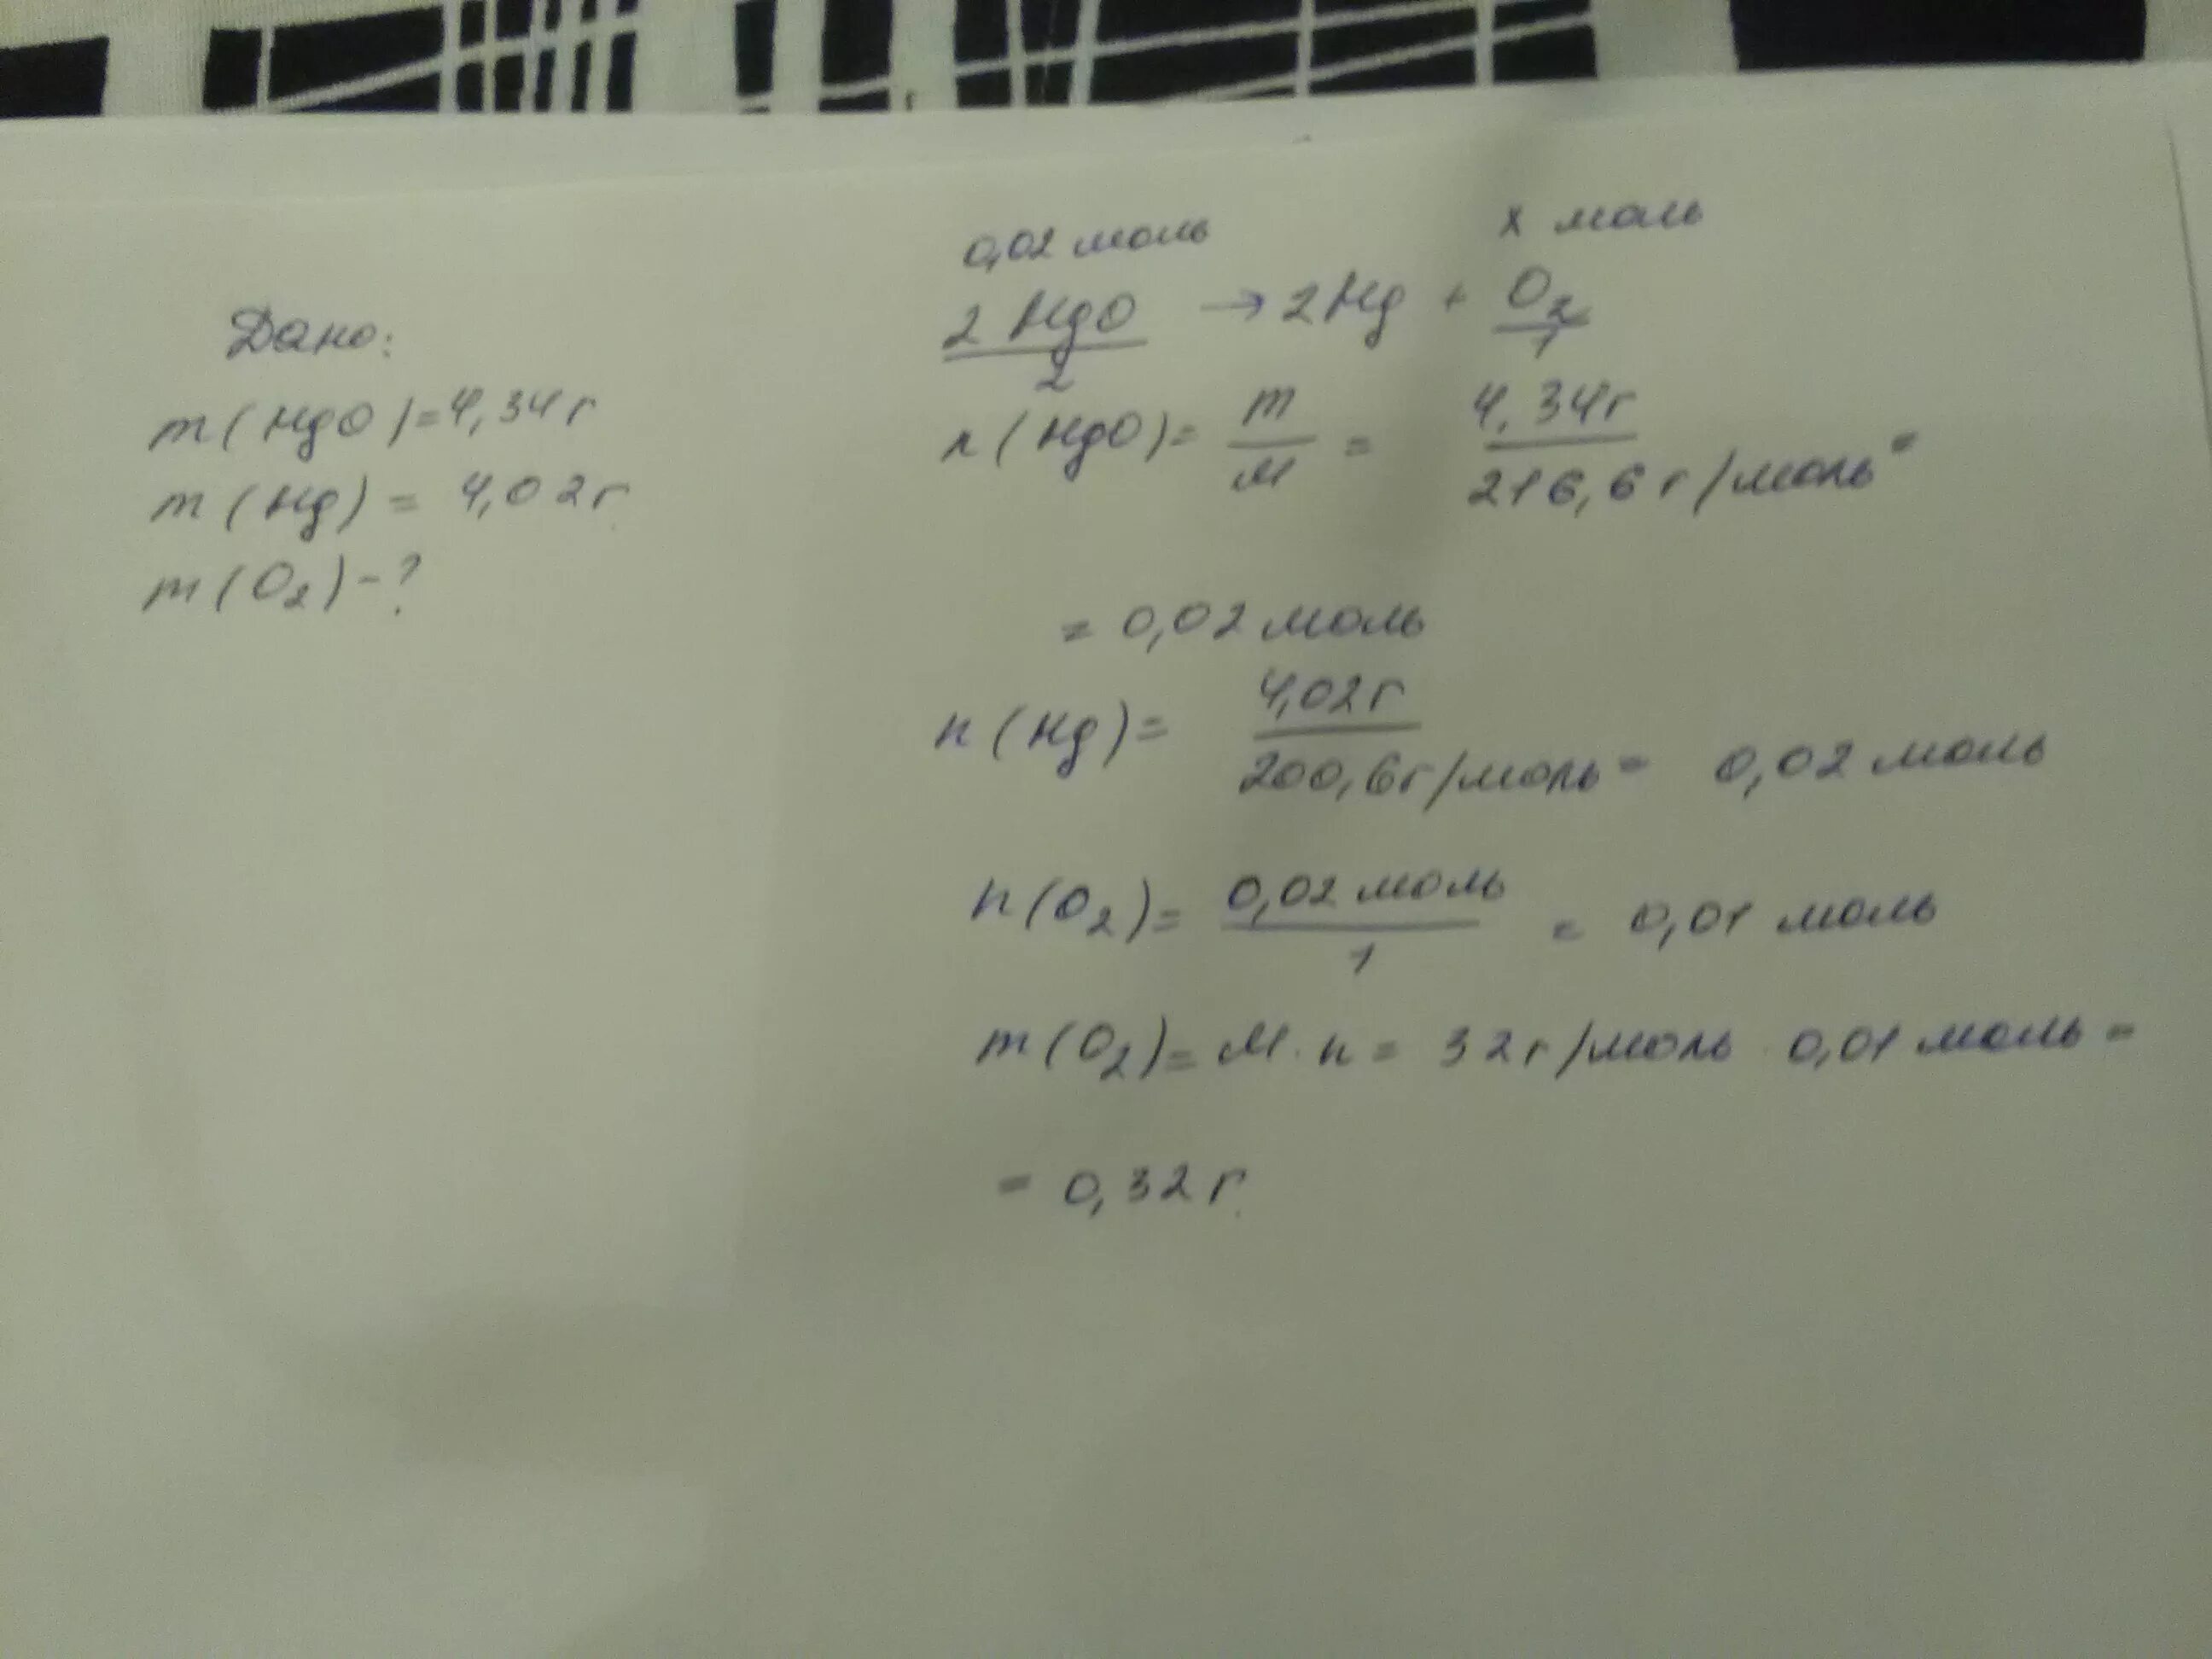 Дано:
m(HgO)=4,34г
m(Hg) = 4,02г
m(O₂)-?
0,02 моль x моль
2HgO → 2Hg + O₂
2 1
n(HgO)= m/M = 4,34г/216,6г/моль =
= 0,02 моль
n(Hg)= 4,02г/200,6г/моль = 0,02 моль
n(O₂)= 0,02 моль/1 = 0,01 моль
m(O₂)= M·n = 32г/моль · 0,01 моль =
= 0,32г.